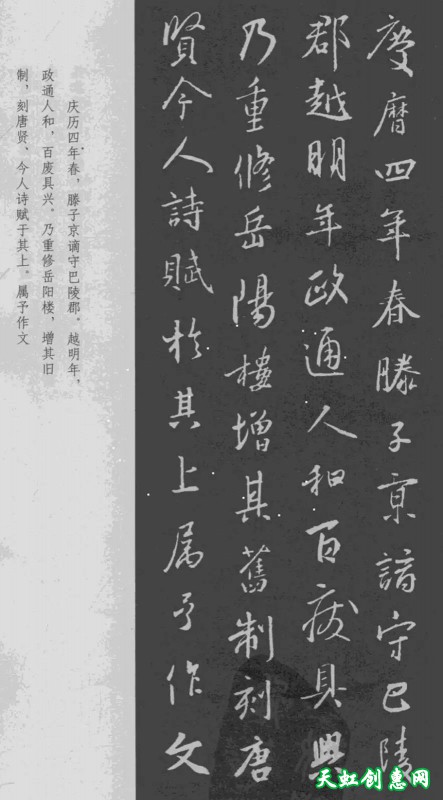 慶曆四年春滕子京謫守巴陵
郡越明年政通人和百废具興
乃重修岳陽樓增其舊制刻唐
賢今人詩賦於其上属予作文
庆历四年春，滕子京谪守巴陵郡。越明年，
政通人和，百废具兴。乃重修岳阳楼，增其旧
制，刻唐贤、今人诗赋于其上。属予作文
天虹创惠网